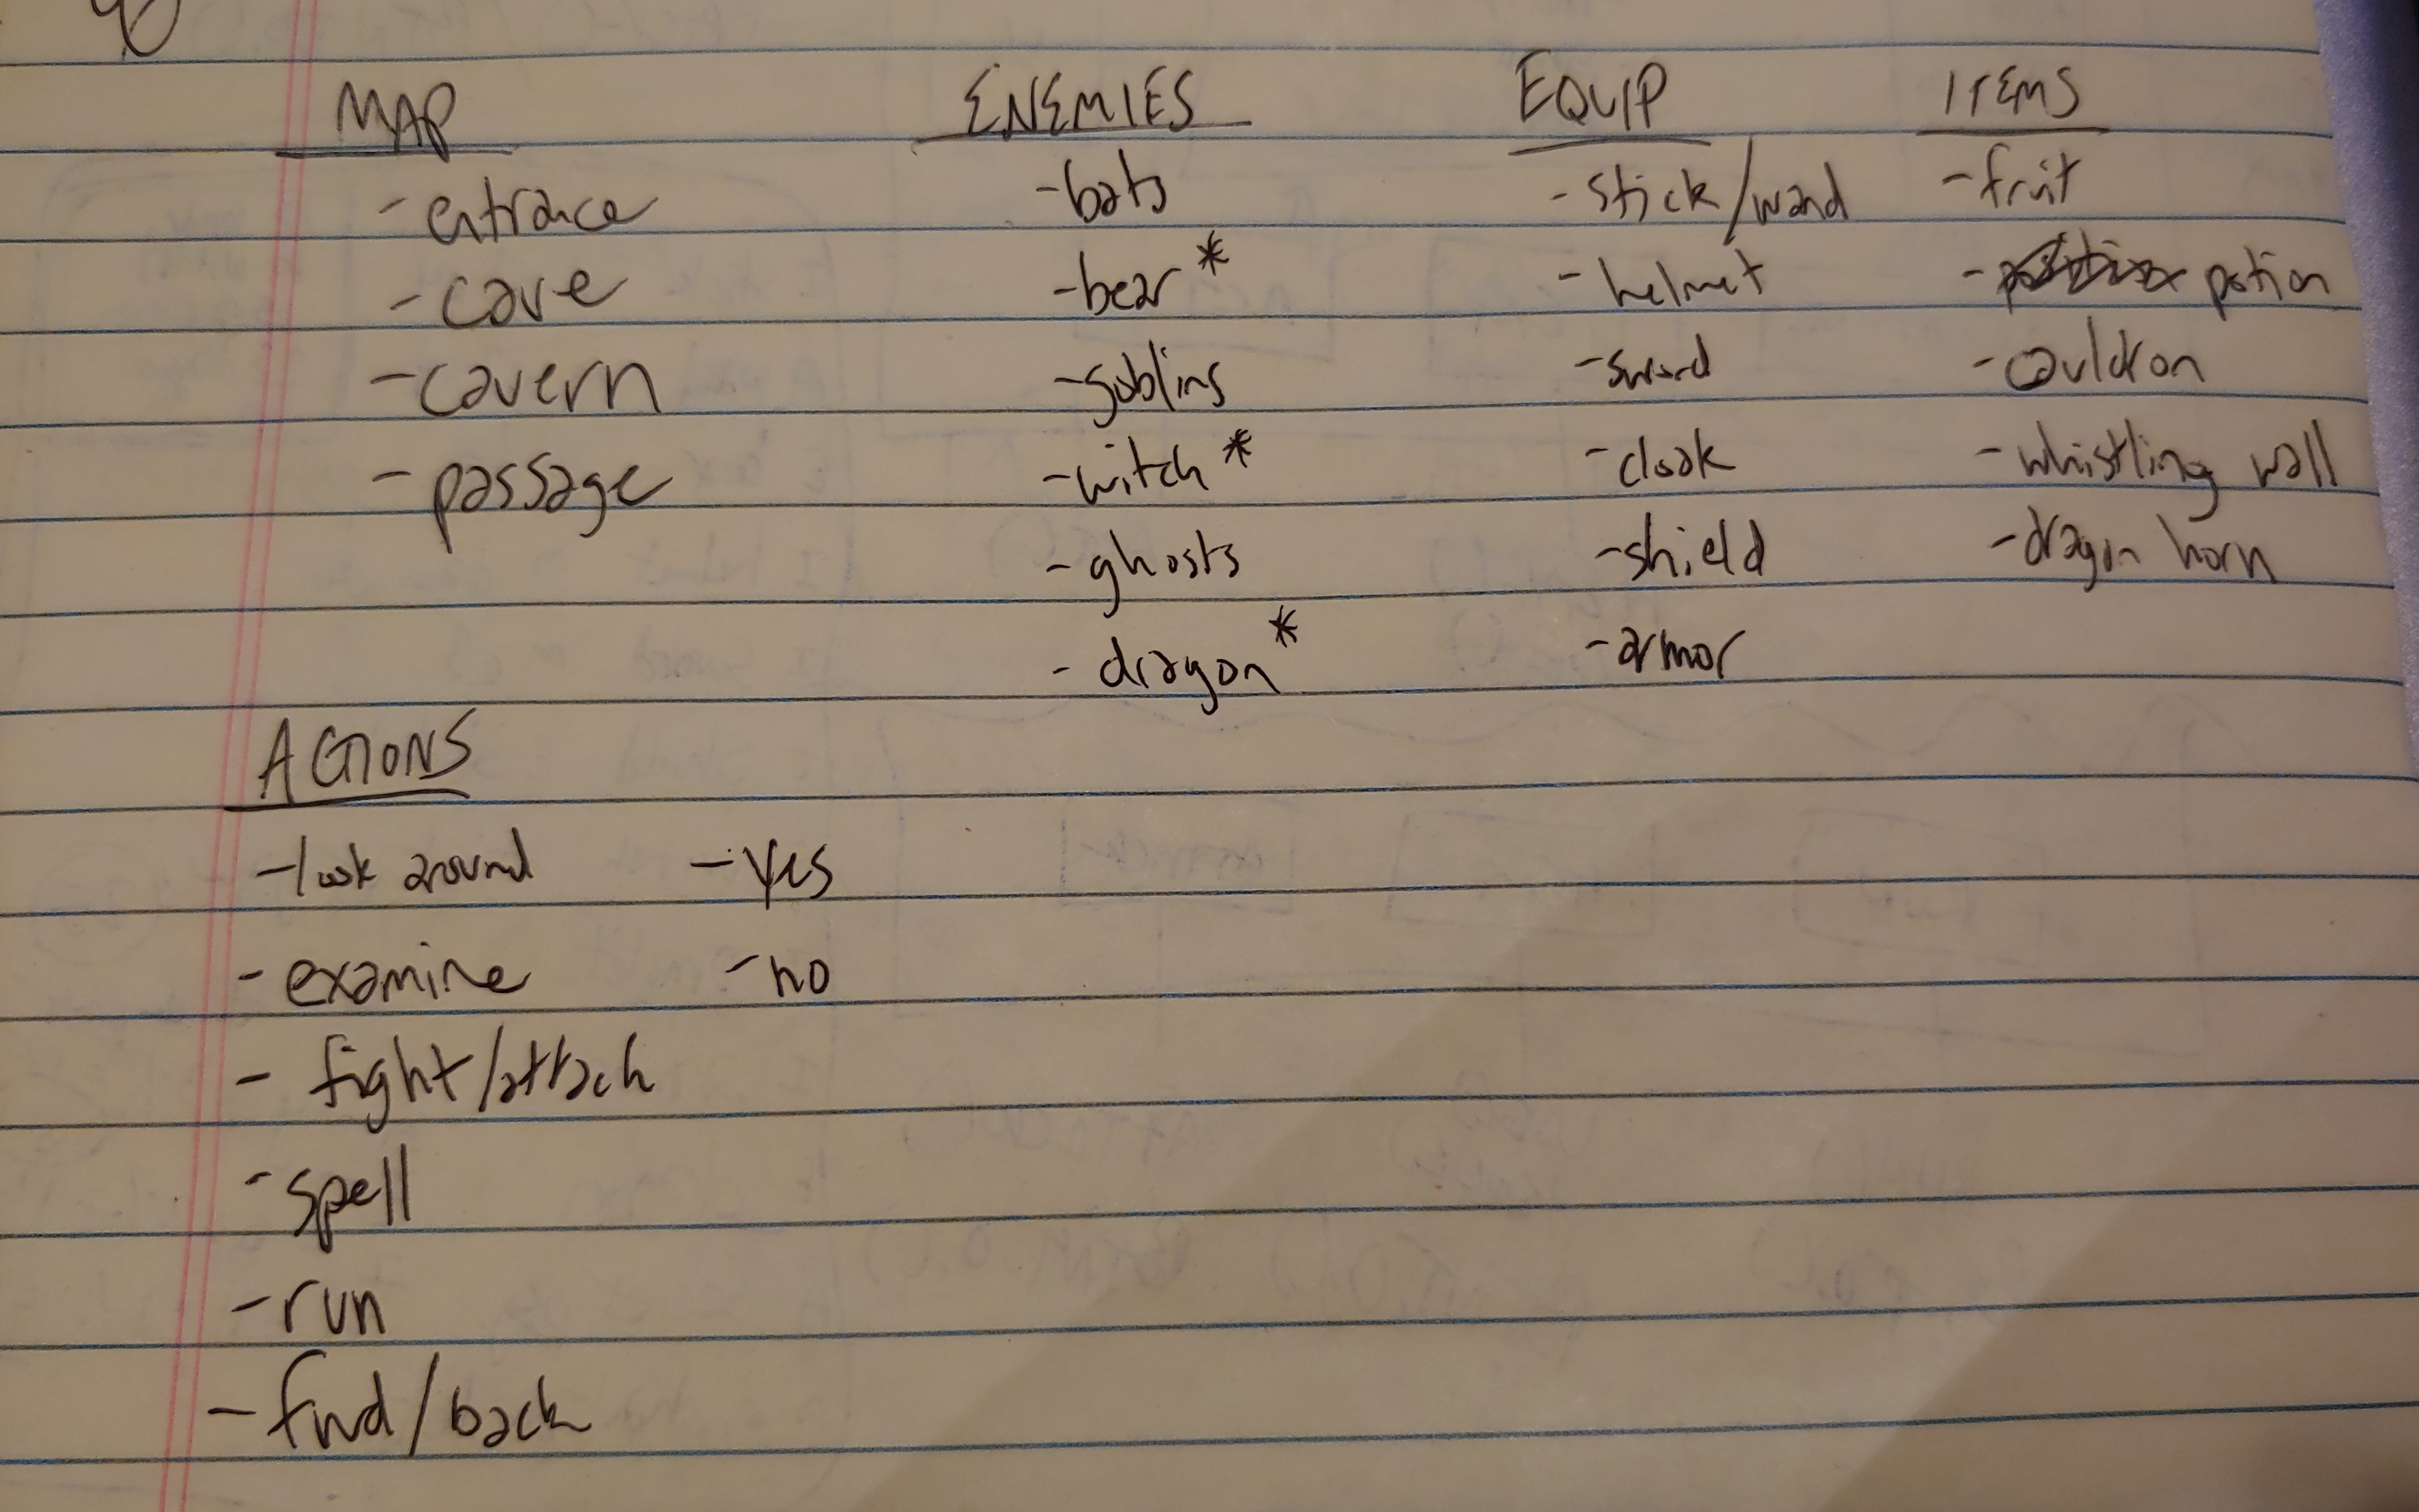 MAP
- entrance
- cave
- cavern
- passage
ENEMIES
- bats
- bear *
- goblins
- witch *
- ghosts
- dragon *
EQUIP
- stick/wand
- helmet
- sword
- cloak
- shield
- armor
ITEMS
- fruit
- potion
- cauldron
- whistling wall
- dragon horn
ACTIONS
- look around
- examine
- fight/attack
- spell
- run
- fwd/back
- yes
- no